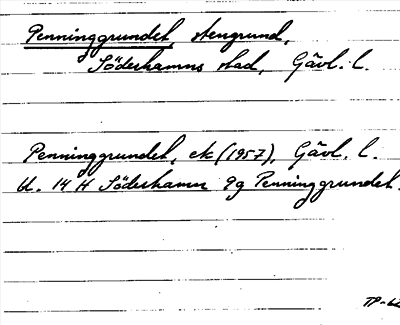 Penninggrundet, stengrund,
Söderhamns stad, Gävl. l.
Penninggrundet, ek (1957), Gävl. l.
Bl. 14 H Söderhamn 9g Penninggrundet.